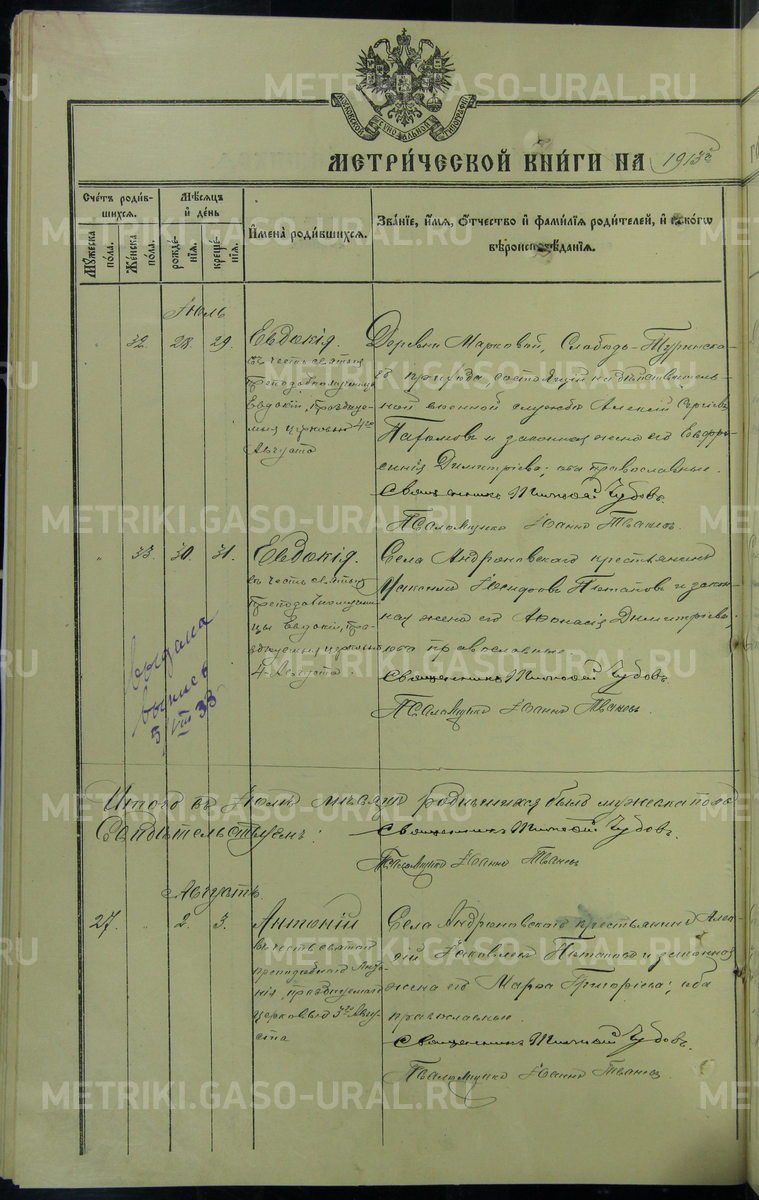 МОСКОВСКОЙ СѴНОДАЛЬНОЙ ТИПОГРАФІИ
МЕТРИ́ЧЕСКОЙ КНИ́ГИ НА 1913 г.
Сче́тъ роди́вшихся.
Мѣ́сяцъ и҆ де́нь
И҆мена̀ роди́вшихся.
Зва́нїе, и҆́мя, ѻ҆́тчество и҆ фами́лїя роди́телей, и҆ како́гѡ вѣроисповѣ́данїя.
Мꙋ́жеска по́ла.
Же́нска по́ла.
рожде́нїя.
креще́нїя.
Іюль
32. 28. 29. Евдокія.
въ честь святыя
преподобномученицы
Евдокіи, празднуе-
мыя церковью 4го
Августа
Деревни Марковой, Слободо-Туринска-
го прихода, состоящій на дѣйствитель-
ной военной службѣ Алексій Сергіевъ
и законная жена его Евфро-
синія Димитріева; оба православные.
Священникъ Чубовъ.
Псаломщикъ Іоаннъ Ивановъ.
" 33. 30. 31. Евдокія.
въ честь святыя
преподобномучени-
цы Евдокіи, пра-
зднуемыя церковью
4 Августа.
Села Андроновскаго крестьянинъ
Потаповъ и закон-
ная жена его Аѳанасія Димитріева;
оба православные.
Священникъ Чубовъ.
Псаломщикъ Іоаннъ Ивановъ.
Выдана
выпись
5/VIII 33
Итого въ Іюлѣ мѣсяцѣ родившихся было мужеска пола
Свидѣтельствуемъ: Священникъ Чубовъ.
Псаломщикъ Іоаннъ Ивановъ
Августъ.
27. " 2. 3. Антоній
въ честь святаго
преподобнаго Анто-
нія, празднуемаго
церковью 3го Авгу-
ста
Села Андроновскаго крестьянинъ
Іаковлевъ Потаповъ и законная
жена его Марѳа Григоріева; оба
православные.
Священникъ Чубовъ.
Псаломщикъ Іоаннъ Ивановъ
METRIKI.GASO-URAL.RU